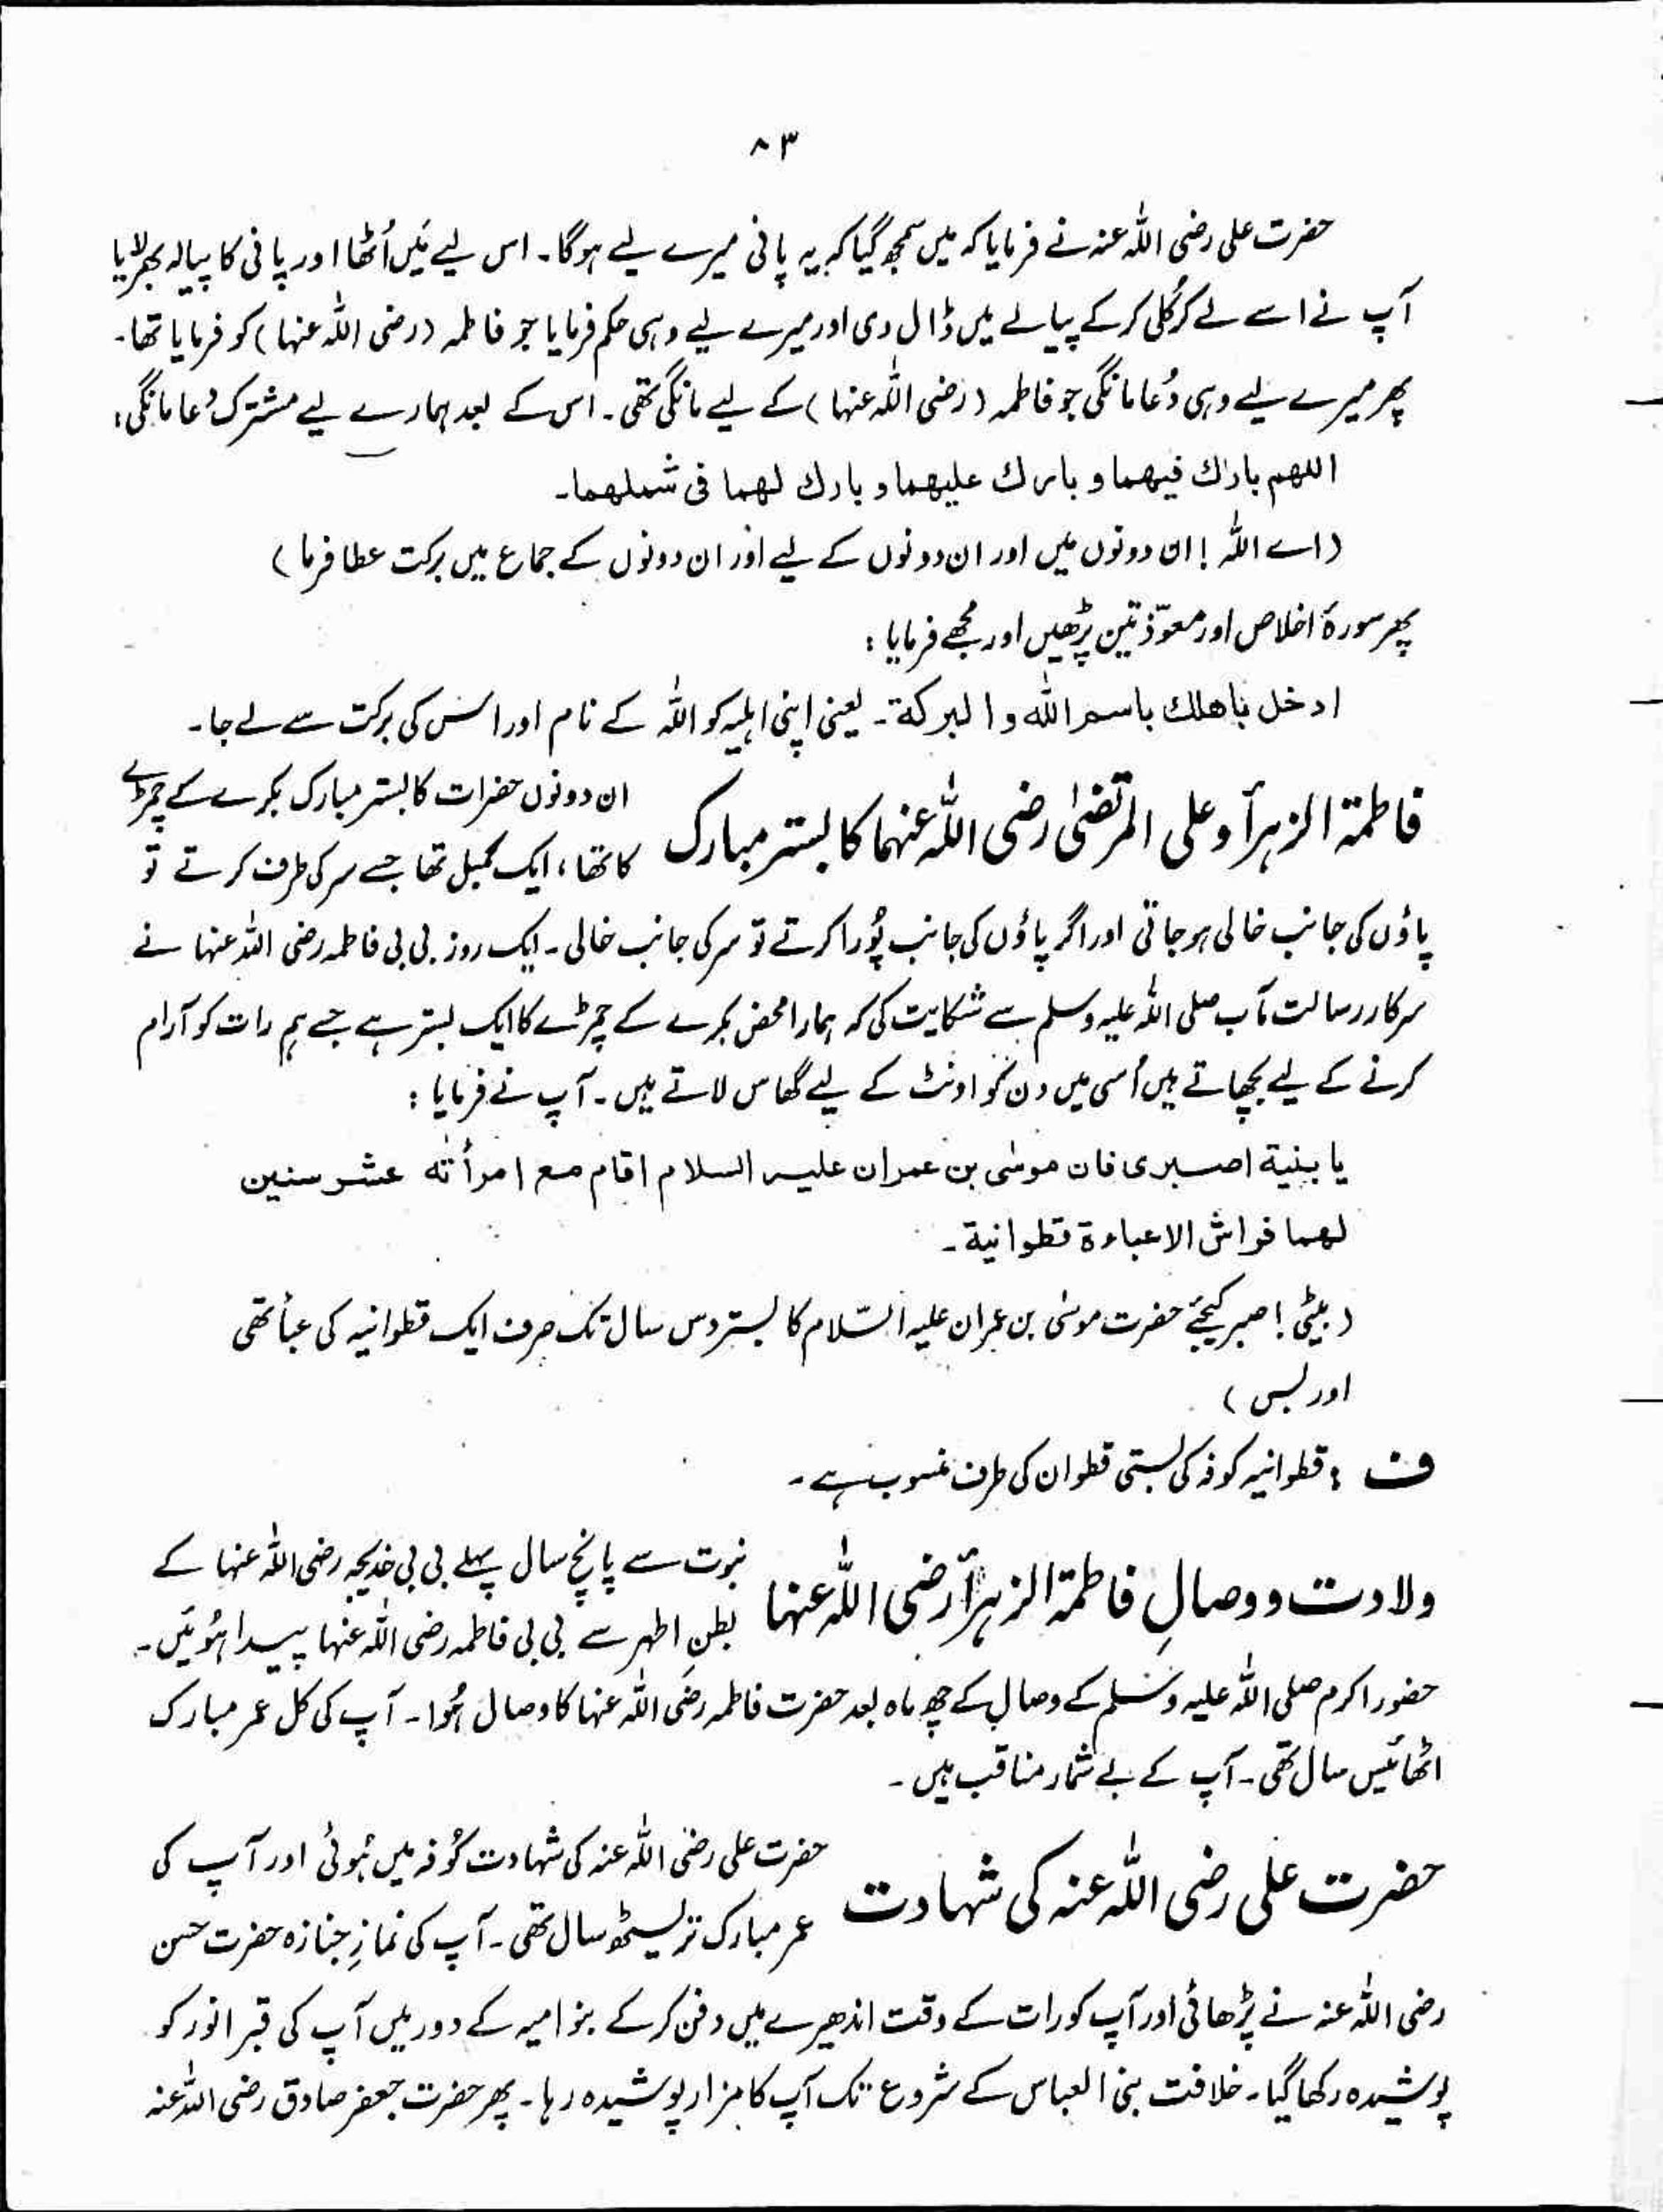 ۸۳
حضرت علی رضی اللہ عنہ نے فرمایا کہ میں سمجھ گیا کہ یہ پانی میرے لیے ہوگا۔ اس لیے مَیں اُٹھا اور پانی کا پیالہ بھر لایا
آپ نے اسے لے کر کُلی کر کے پیالے میں ڈال دی اور میرے لیے وہی حکم فرمایا جو فاطمہ (رضی اللہ عنہا) کو فرمایا تھا۔
پھر میرے لیے وہی دُعا مانگی جو فاطمہ (رضی اللہ عنہا) کے لیے مانگی تھی۔ اس کے بعد ہمارے لیے مشترک دُعا مانگی:
اللهم بارك فيهما و بارك عليهما و بارك لهما فى شملهما۔
(اے اللہ! ان دونوں میں اور ان دونوں کے لیے اور ان دونوں کے جماع میں برکت عطا فرما)
پھر سورۂ اخلاص اور معوّذتین پڑھیں اور مجھے فرمایا:
ادخل باهلك باسم الله و البركة۔ یعنی اپنی اہلیہ کو اللہ کے نام اور اس کی برکت سے لے جا۔
فاطمۃ الزہرأ و علی المرتضیٰ رضی اللہ عنہما کا بستر مبارک
ان دونوں حضرات کا بستر مبارک بکرے کے چمڑے
کا تھا، ایک کمبل تھا جسے سر کی طرف کرتے تو
پاؤں کی جانب خالی ہو جاتی اور اگر پاؤں کی جانب پُورا کرتے تو سر کی جانب خالی۔ ایک روز بی بی فاطمہ رضی اللہ عنہا نے
سرکار رسالت مآب صلی اللہ علیہ وسلم سے شکایت کی کہ ہمارا محض بکرے کے چمڑے کا ایک بستر ہے جسے ہم رات کو آرام
کرنے کے لیے بچھاتے ہیں اُسی میں دن کو اونٹ کے لیے گھاس لاتے ہیں۔ آپ نے فرمایا:
يا بنية اصبرى فان موسٰى بن عمران عليه السلام اقام مع امرأته عشر سنين
لهما فراش الا عباءة قطوانية۔
(بیٹی! صبر کیجئے حضرت موسٰی بن عمران علیہ السّلام کا بستر دس سال تک صرف ایک قطوانیہ کی عبأ تھی
اور بس)
ف: قطوانیہ کوفہ کی بستی قطوان کی طرف منسوب ہے۔
ولادت و وصالِ فاطمۃ الزہرأ رضی اللہ عنہا
نبوت سے پانچ سال پہلے بی بی خدیجہ رضی اللہ عنہا کے
بطنِ اطہر سے بی بی فاطمہ رضی اللہ عنہا پیدا ہُوئیں۔
حضور اکرم صلی اللہ علیہ وسلم کے وصال کے چھ ماہ بعد حضرت فاطمہ رضی اللہ عنہا کا وصال ہُوا۔ آپ کی کل عمر مبارک
اٹھائیس سال تھی۔ آپ کے بے شمار مناقب ہیں۔
حضرت علی رضی اللہ عنہ کی شہادت
حضرت علی رضی اللہ عنہ کی شہادت کُوفہ میں ہُوئی اور آپ کی
عمر مبارک تریسٹھ سال تھی۔ آپ کی نمازِ جنازہ حضرت حسن
رضی اللہ عنہ نے پڑھائی اور آپ کو رات کے وقت اندھیرے میں دفن کر کے بنو امیہ کے دور میں آپ کی قبر انور کو
پوشیدہ رکھا گیا۔ خلافت بنی العباس کے شروع تک آپ کا مزار پوشیدہ رہا۔ پھر حضرت جعفر صادق رضی اللہ عنہ